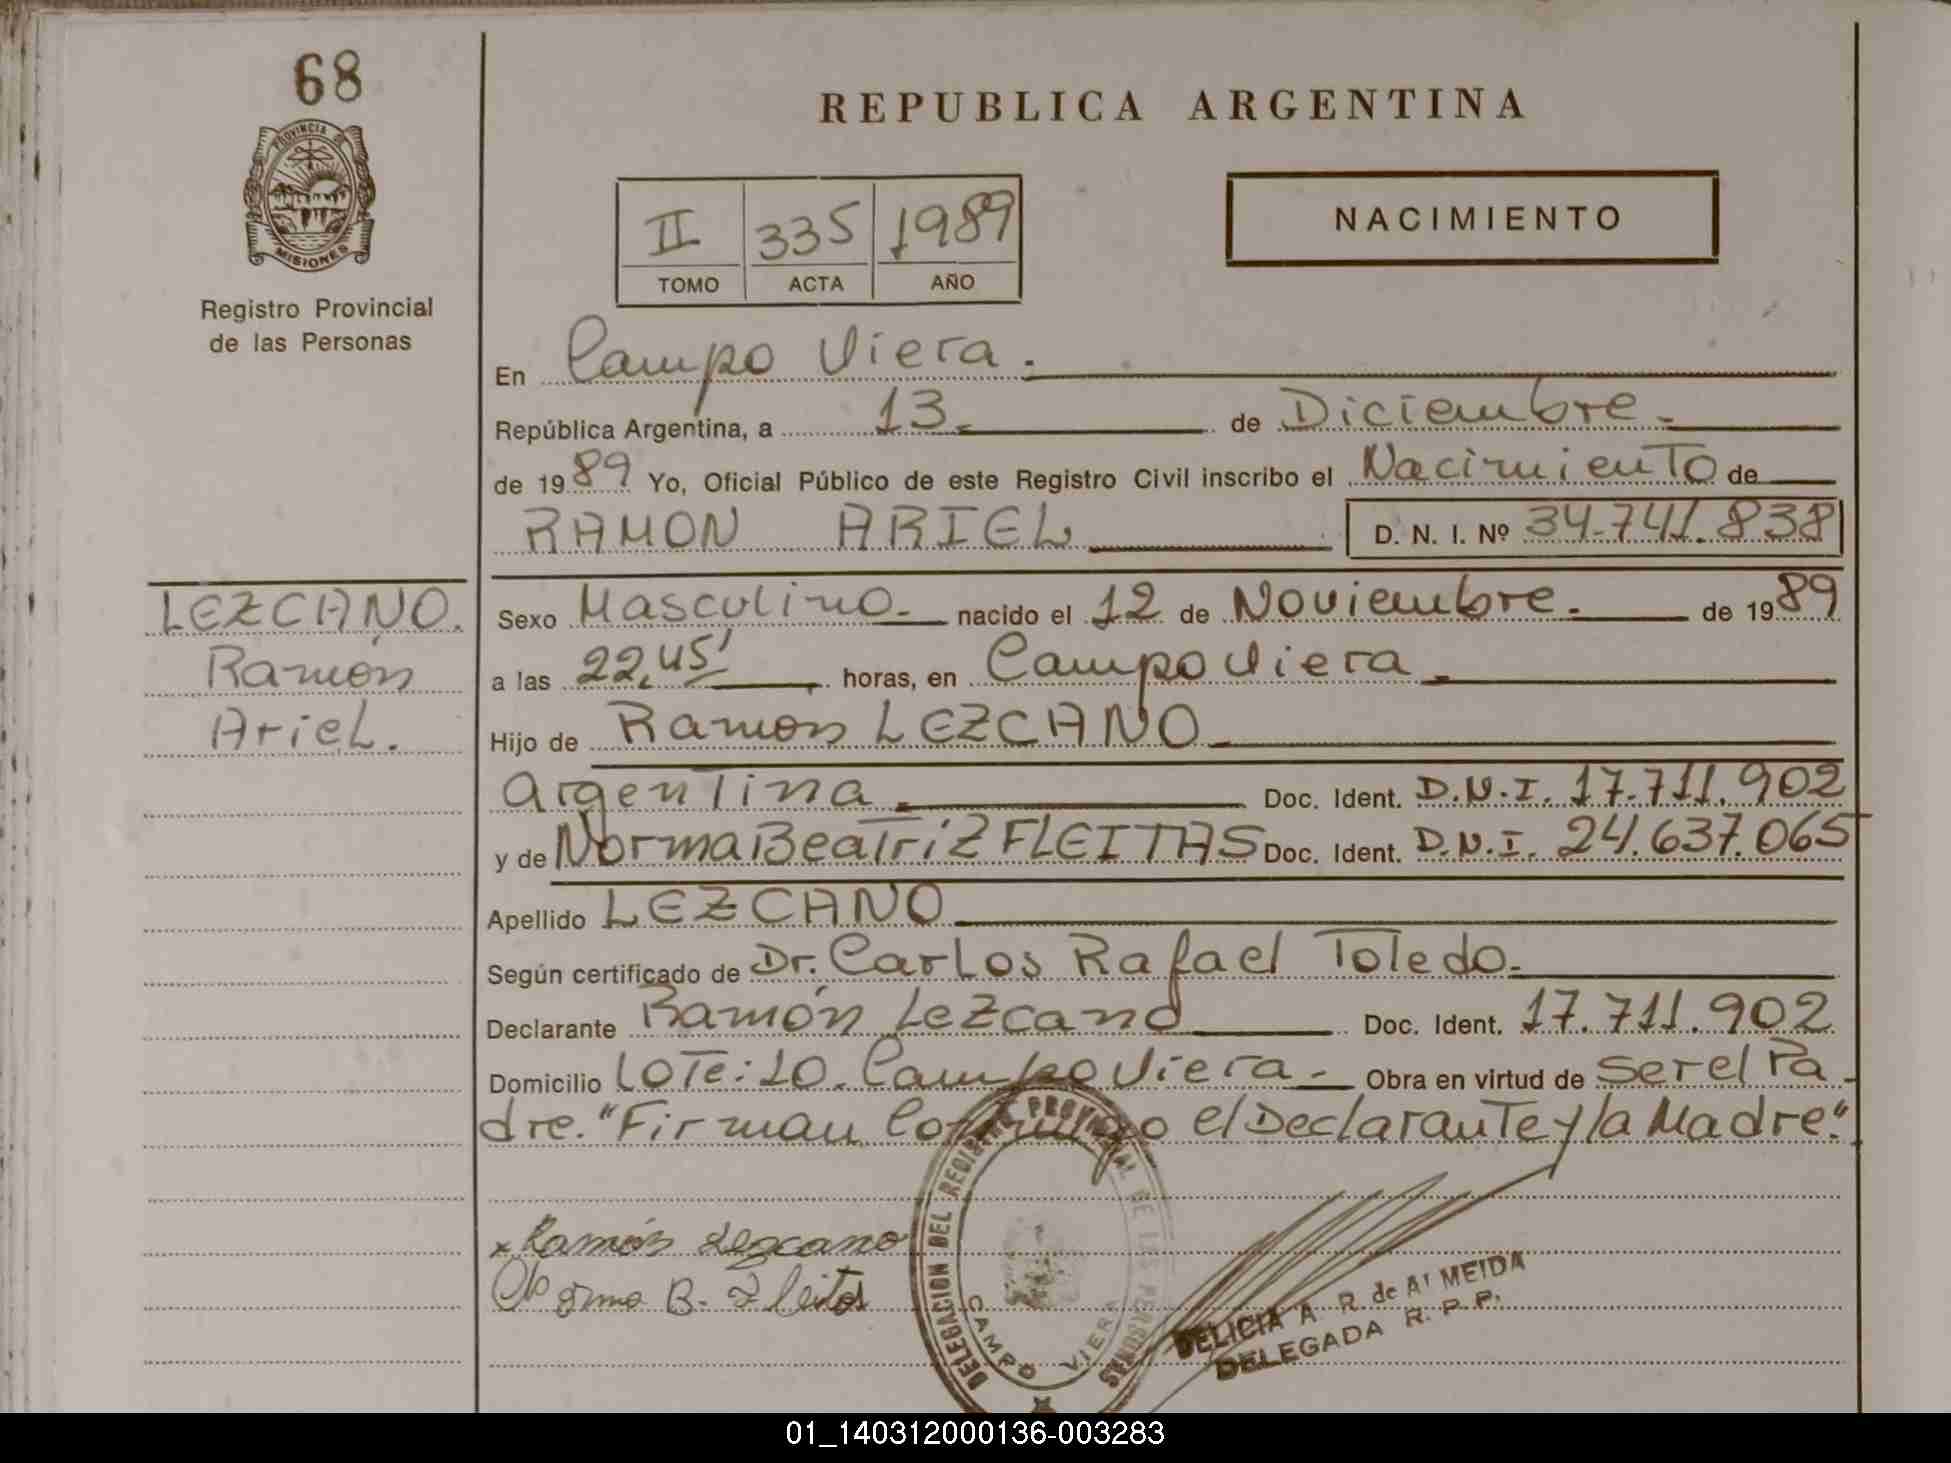 68
PROVINCIA DE
MISIONES
Registro Provincial
de las Personas
REPUBLICA ARGENTINA
II 335 1989
TOMO ACTA AÑO
NACIMIENTO
En Campo Viera.
República Argentina, a 13 de Diciembre.
de 1989 Yo, Oficial Público de este Registro Civil inscribo el Nacimiento de
RAMON ARIEL D. N. I. Nº 34.741.838
LEZCANO.
Ramón
Ariel.
Sexo Masculino nacido el 12 de Noviembre. de 1989
a las 22,45' horas, en Campo Viera
Hijo de Ramón LEZCANO
Argentina Doc. Ident. D.N.I. 17.711.902
y de Norma Beatriz FLEITAS Doc. Ident. D.N.I. 24.637.065
Apellido LEZCANO
Según certificado de Dr. Carlos Rafael Toledo.
Declarante Ramón Lezcano Doc. Ident. 17.711.902
Domicilio Lote: 10. Campo Viera Obra en virtud de ser el Pa-
dre. "Firman Conmigo el Declarante y la Madre".
x Ramón Lezcano
Norma B. Fleitas
DELEGACION DEL REGISTRO PROVINCIAL DE LAS PERSONAS
CAMPO VIERA
DELICIA A. R. de ALMEIDA
DELEGADA R. P. P.
01_140312000136-003283